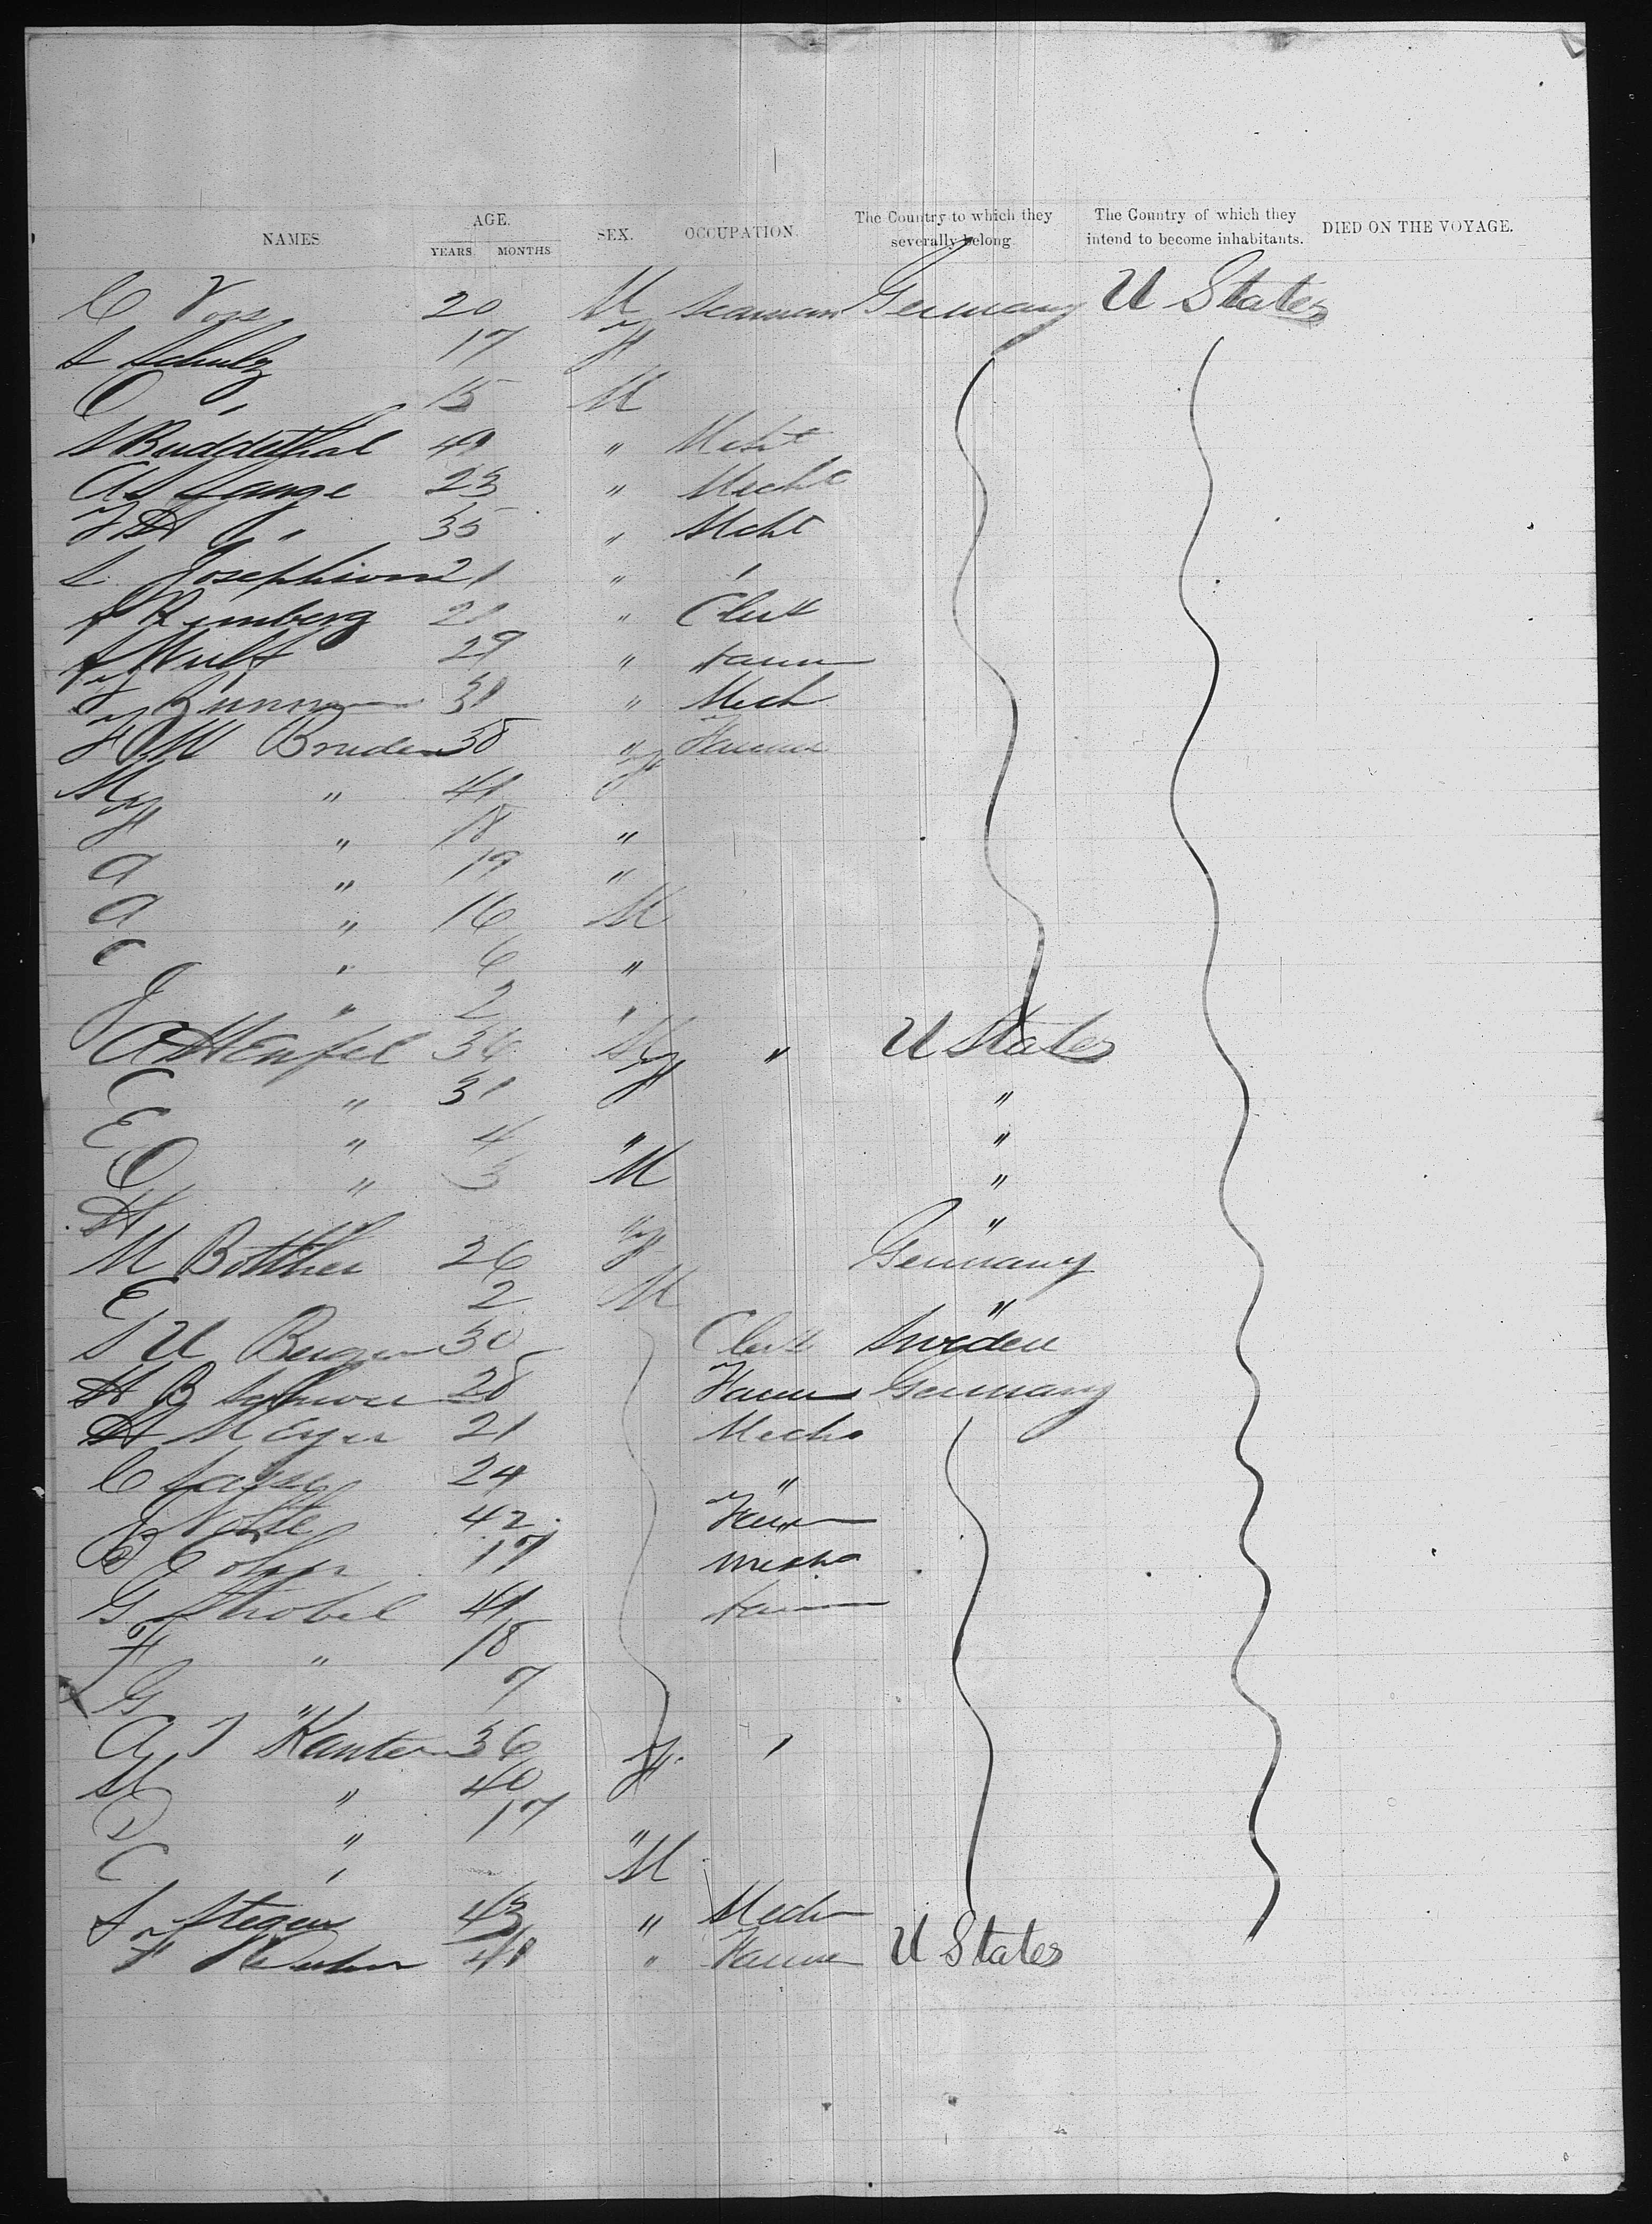 NAMES AGE. YEARS MONTHS SEX. OCCUPATION. The Country to which they severally belong The Country of which they intend to become inhabitants. DIED ON THE VOYAGE.
C Voss 20 M Seaman Germany U States
S Schulz 17 F
O " 15 M
S Buddethal 41 "
A S Lange 23 "
35 " Mcht
S. Josephson 21 " "
Rimberg 21 " Clerk
Wulf 29 "
31 " Mech
F W Bruden 38 " Farmer
M " 41 F
F " 18 "
A " 19 "
A " 16 M
C " 6 "
J " 2 "
A Henfel 34 M " U States
C " 31 F "
E " 4 " "
O " 3 M "
H " "
M Botther 26 F Germany
E 2 M "
S U Bergen 30 Clerk Sweden
H B 28 Farmer Germany
H Meyer 21 Mech
C 24 "
Nolte 42
17 Mech
G Strobel 41
F " 18
G " 7
A J Kanter 36 "
M " 40 F
D " 17 "
C " M
S Stegen 43 " Mech
F 41 " Farmer U States